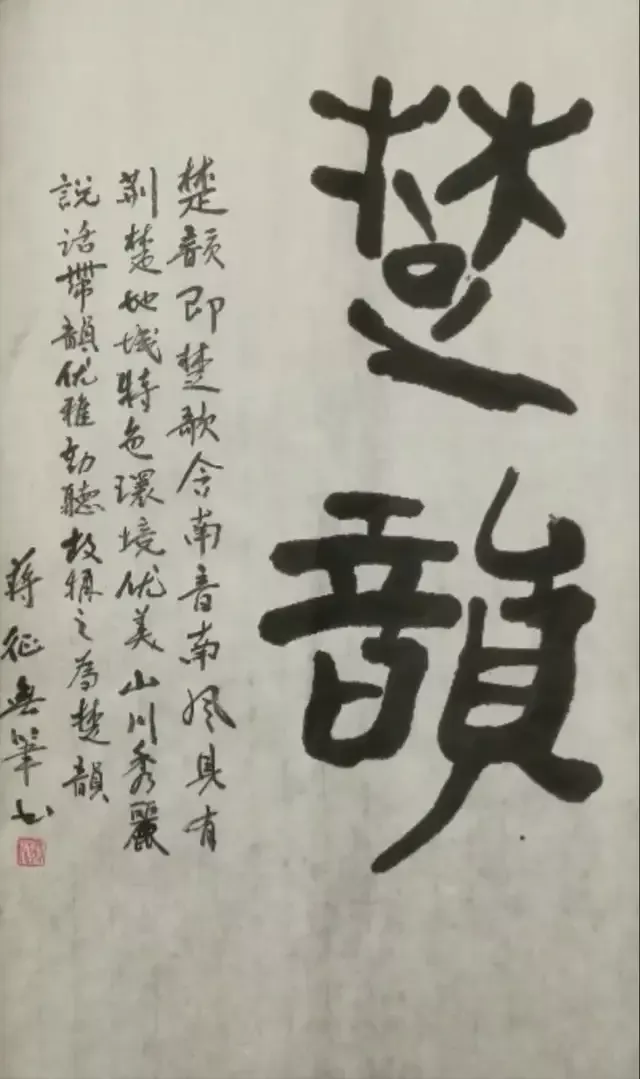 楚韻
楚韻即楚歌含南音南风具有
荆楚地域特色環境优美山川秀麗
說話帶韻优雅動聽故稱之為楚韻
蔣征無筆书